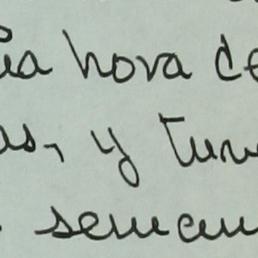 ia hora de
as, y tuve
seman